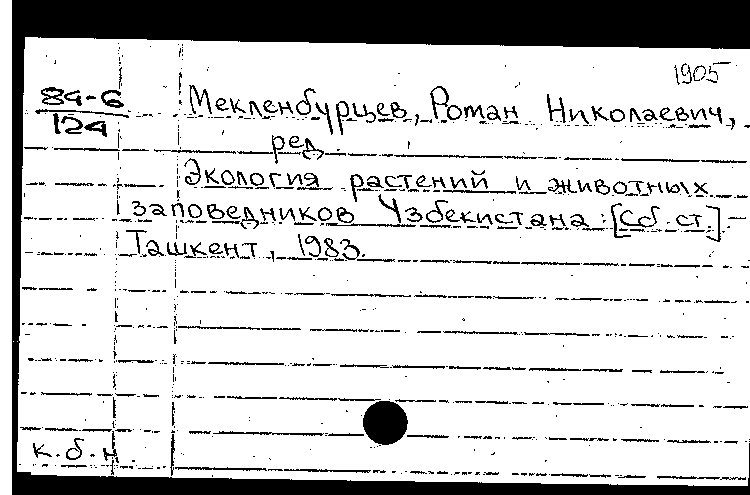 1905
84-6
124
Мекленбурцев, Роман Николаевич,
ред.
Экология растений и животных
заповедников Узбекистана: [Сб. ст.] –
Ташкент, 1983.
к.б.н.